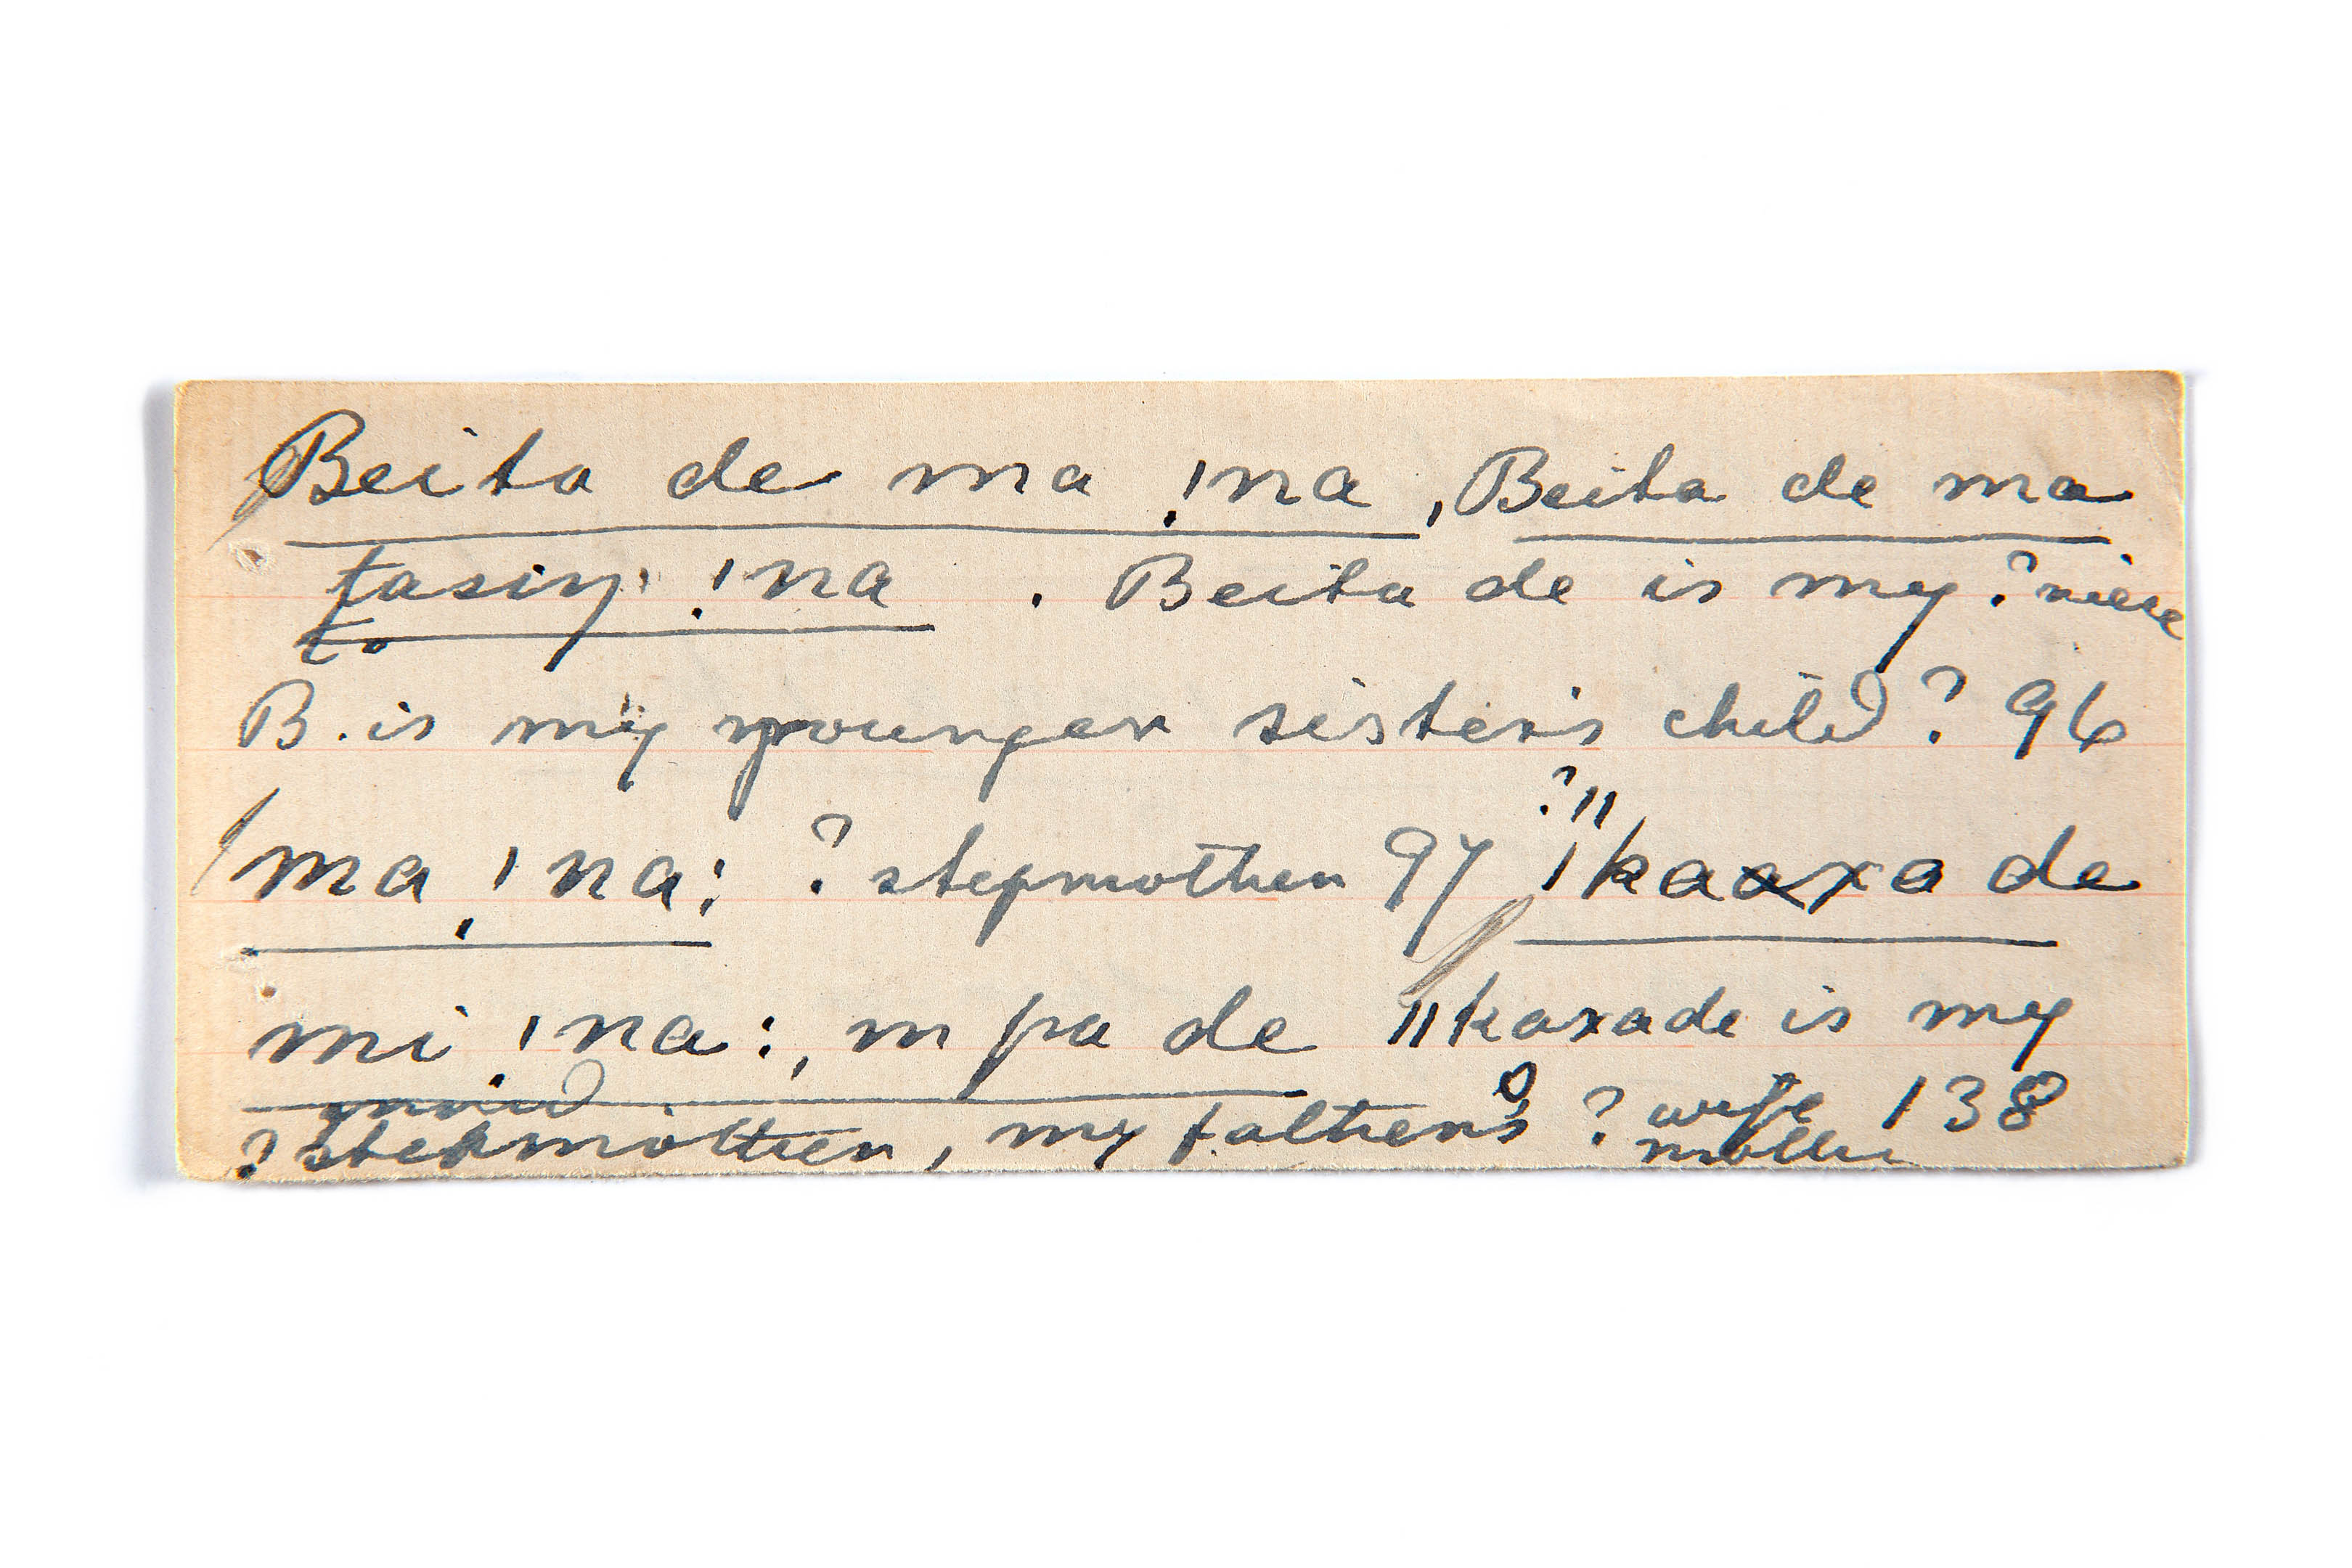 Beita de ma !na, Beita de ma
tasiŋ !na . Beita de is my ? niece
to
B. is my younger sister's child ? 96
ma !na: ? stepmother 97 ?ǁ
ǀkaaxa de
mi !na:, m pa de ǁkaxade is my
? stepmother, my father's ? wife 138
mother